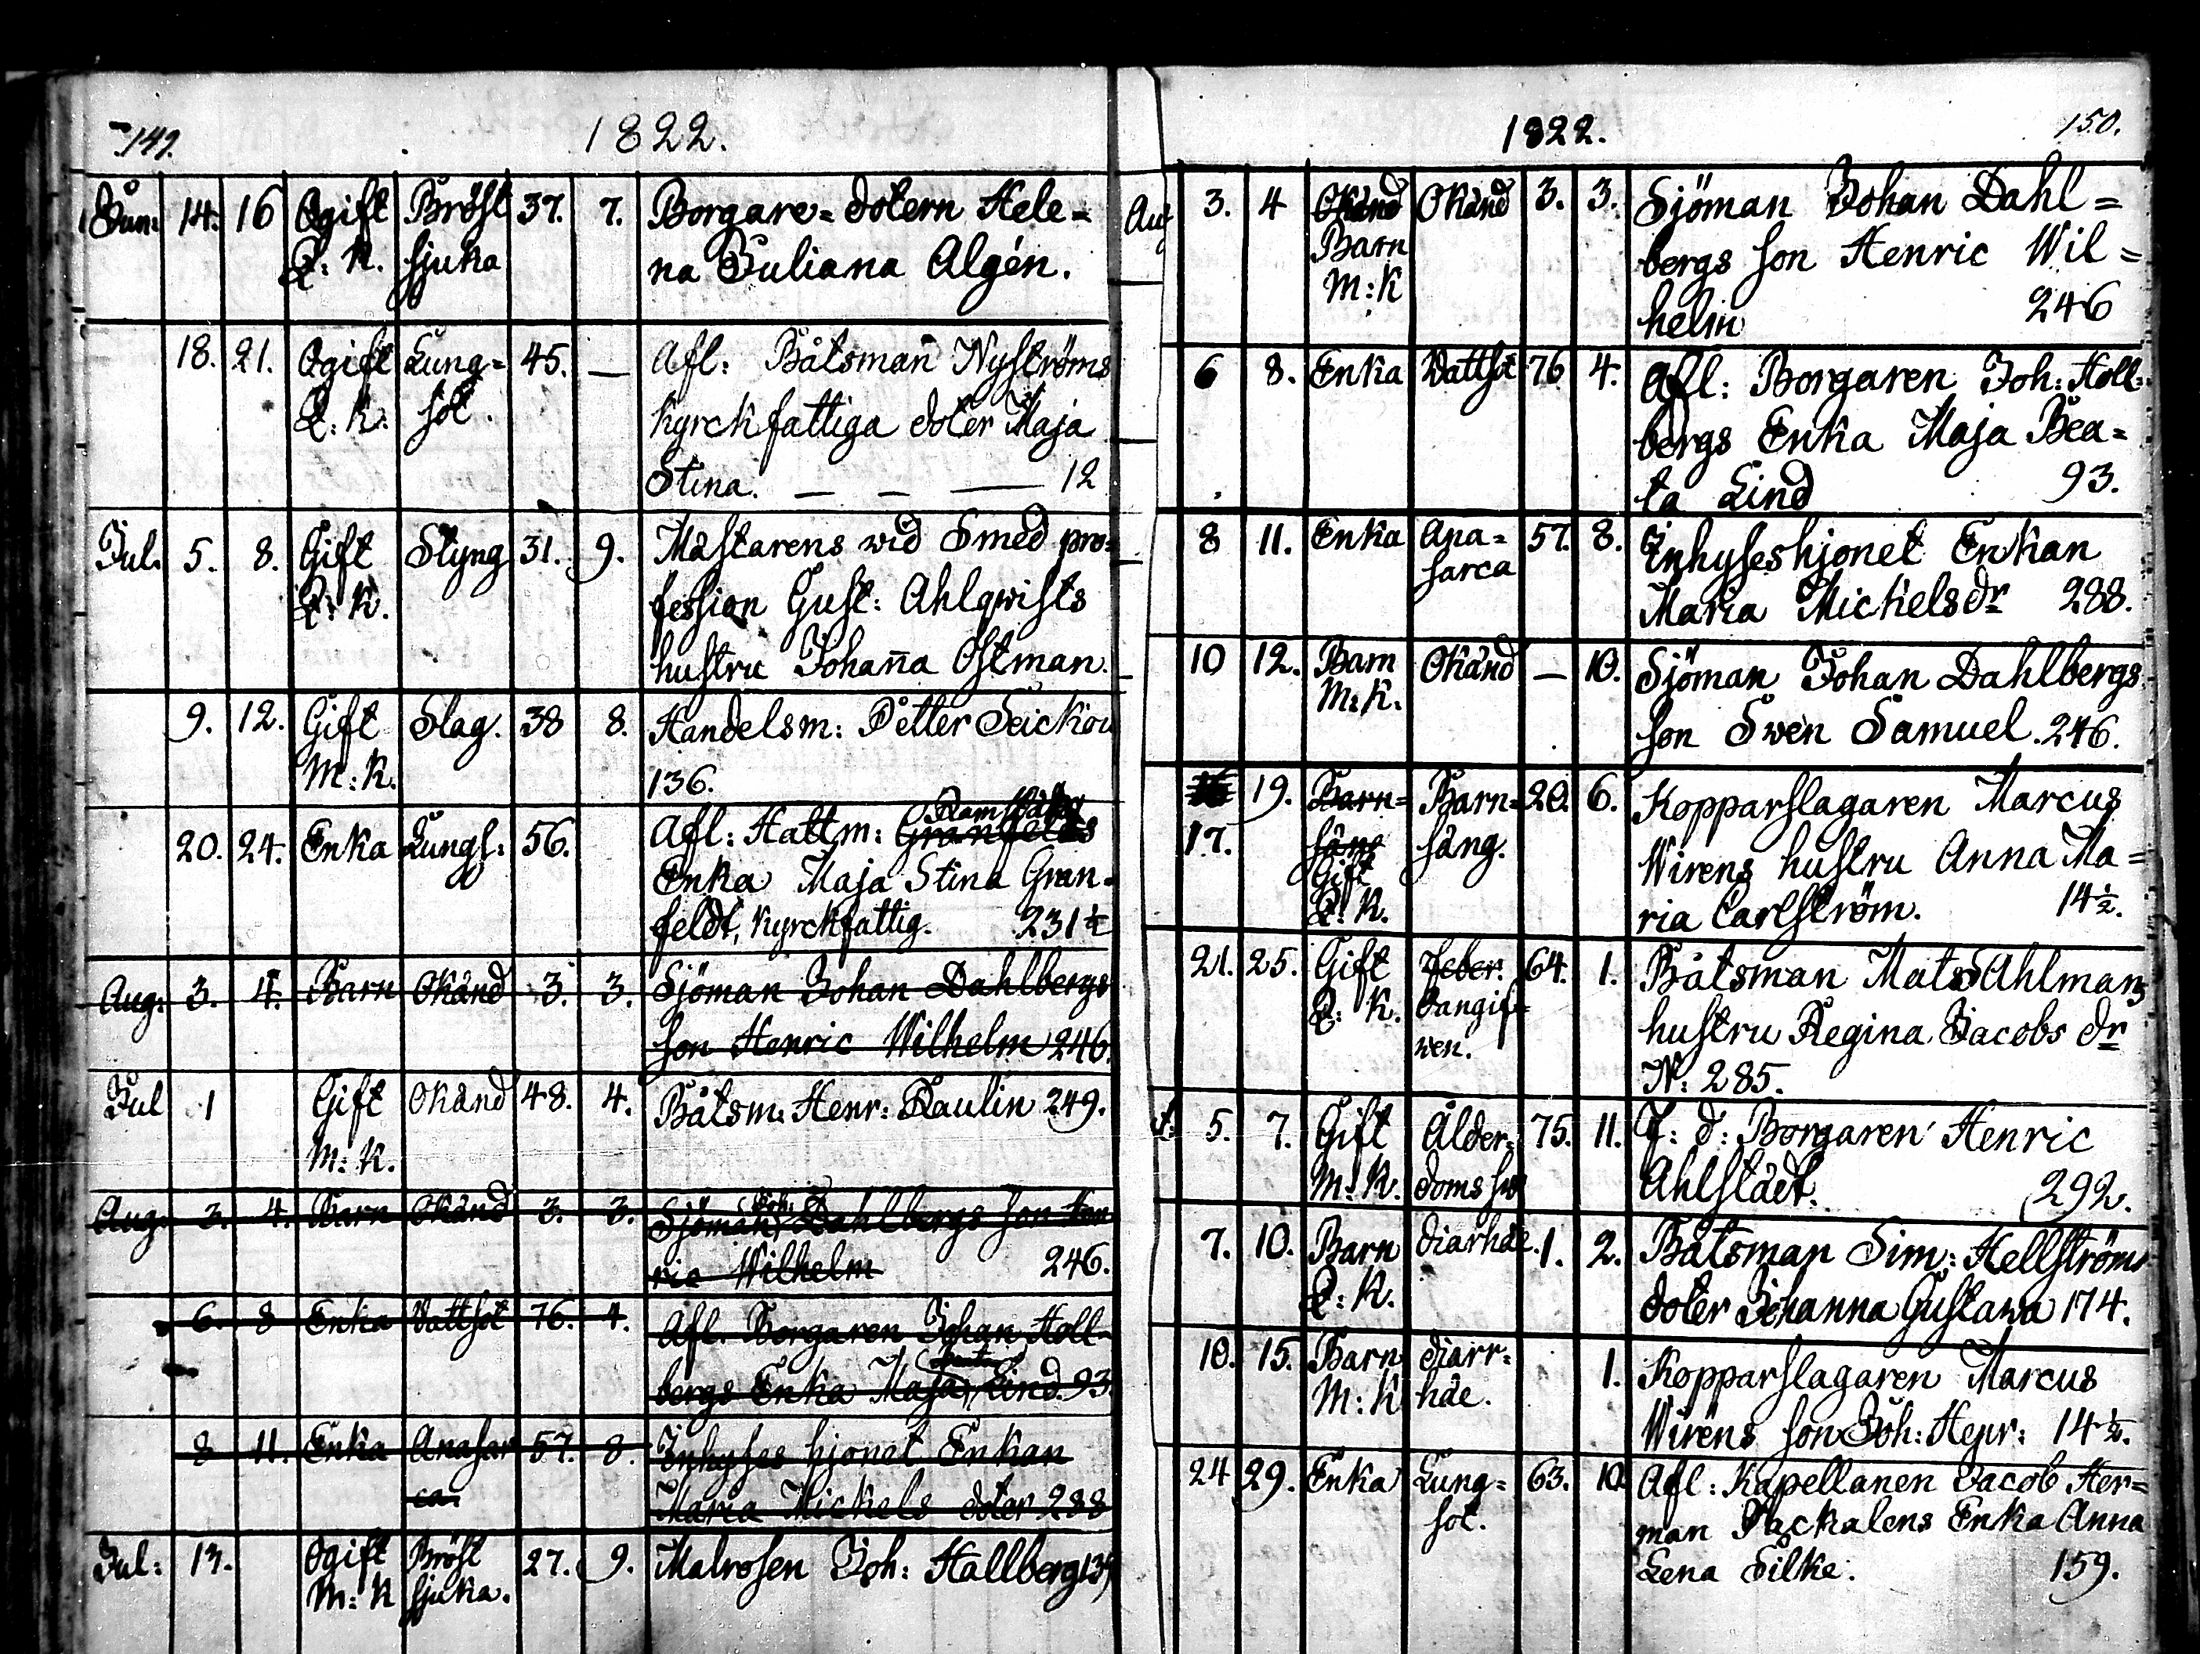 149.
1822.
Jun: 14. 16 Ogift Bröst 37. 7. Borgare=dotern Hele=
Q: K. sjuka na Juliana Algén.
18. 21. Ogift Lung= 45. — Afl: Båtsman Nyströms
Q: K. sot. Kyrckfattiga doter Maja
Stina. — — — 12
Jul. 5. 8. Gift Styng 31. 9. Mästarens wid Smed pro=
Q: K. fession Gust: Ahlqwists
hustru Johan̄a Ostman.
9. 12. Gift Slag. 38 8. Handelsm: Petter
M: K. 136.
20. 24. Enka Lungs: 56. Afl: Hattm: Granfelds
Enka Maja Stina Gran=
feldt, Kyrckfattig. 231½
Aug: 3. 4. Barn Okänd 3. 3. Sjöman Johan Dahlbergs
son Henric Wilhelm 246.
Jul 1 Gift Okänd 48. 4. Båtsm: Henr: Paulin 249.
M: K.
Aug. 3. 4. Barn Okänd 3. 3. Sjöman Joh: Dahlbergs son Hen
ric Wilhelm 246.
6. 8 Enka Vattsot 76. 4. Afl. Borgaren Johan Holl=
bergs Enka Maja Beata Lind. 93.
8 11. Enka Anasar 57. 8. Inhyses hjonet Enkan
ca. Maria Mickels doter 288
Jul: 13. Ogift Bröst 27. 9. Matrosen Joh: Hallberg
M: K sjuka.
1822.
150.
Aug 3. 4 Okänd Okänd 3. 3. Sjöman Johan Dahl=
Barn bergs son Henric Wil=
M: K helm 246
6 8. Enka Wattsot 76 4. Afl: Borgaren Joh: Holl=
bergs Enka Maja Bea=
ta Lind 93.
8 11. Enka Ana= 57. 8. Inhyseshjonet Enkan
sarca Maria Mickelsdr 288.
10 12. Barn Okänd — 10. Sjöman Johan Dahlbergs
M: K. son Swen Samuel. 246.
16 19. Barn= Barn= 20. 6. Kopparslagaren Marcus
17. säng säng. Wirens hustru Anna Ma=
Gift ria Carlström. 14½.
Q: K.
21. 25. Gift Feber. 64. 1. Båtsman Mats Ahlmans
Q: K. oangif= hustru Regina Jacobs dr
wen. N: 285.
5. 7. Gift Ålder= 75. 11. F: d: Borgaren Henric
M: K. doms sw Ahlstädt. 292.
7. 10. Barn diarhde. 1. 2. Båtsman Sim: Hellströms
Q: K. doter Johanna Gustava 174.
10. 15. Barn diarr= 1. Kopparslagaren Marcus
M: K hde. Wirens son Joh: Henr: 14½.
24 29. Enka Lung= 63. 10 Afl: Kapellanen Jacob Her=
sot. man Packalens Enka Anna
Lena Silke. 159.